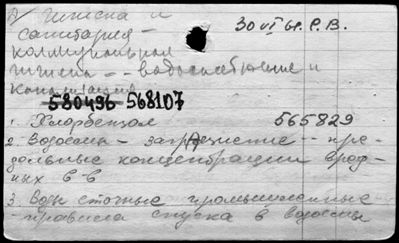 А гигиена и
санитария –
коммунальная
гигиена – водоснабжение и
канализация
30 VI 61. Р. В.
580496 568107
1. Хлорбензол 565829
2. Водоемы – загрязнение – пре-
дельные концентрации вред-
ных в-в
3. Воды сточные промышленные
– правила спуска в водоемы